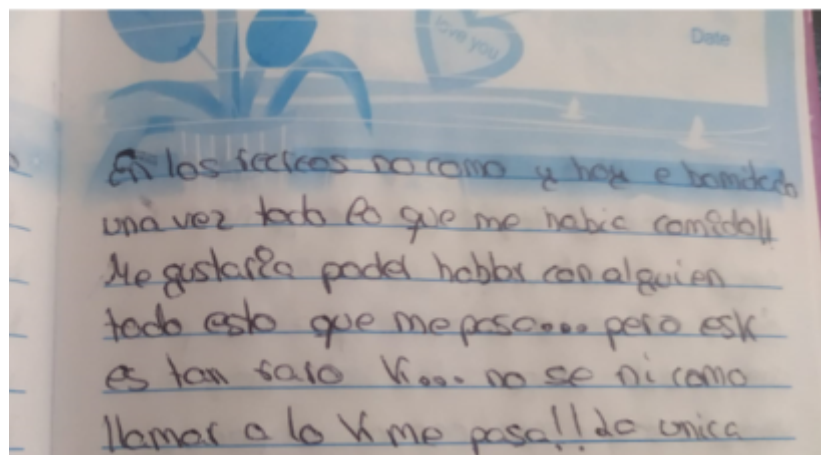 love you
Date
En los recreos no como y hoy e bomitado
una vez todo lo que me habia comido!!
Me gustaria poder hablar con alguien
todo esto que me pasa... pero esk
es tan raro k... no se ni como
llamar a lo k me pasa!! La unica